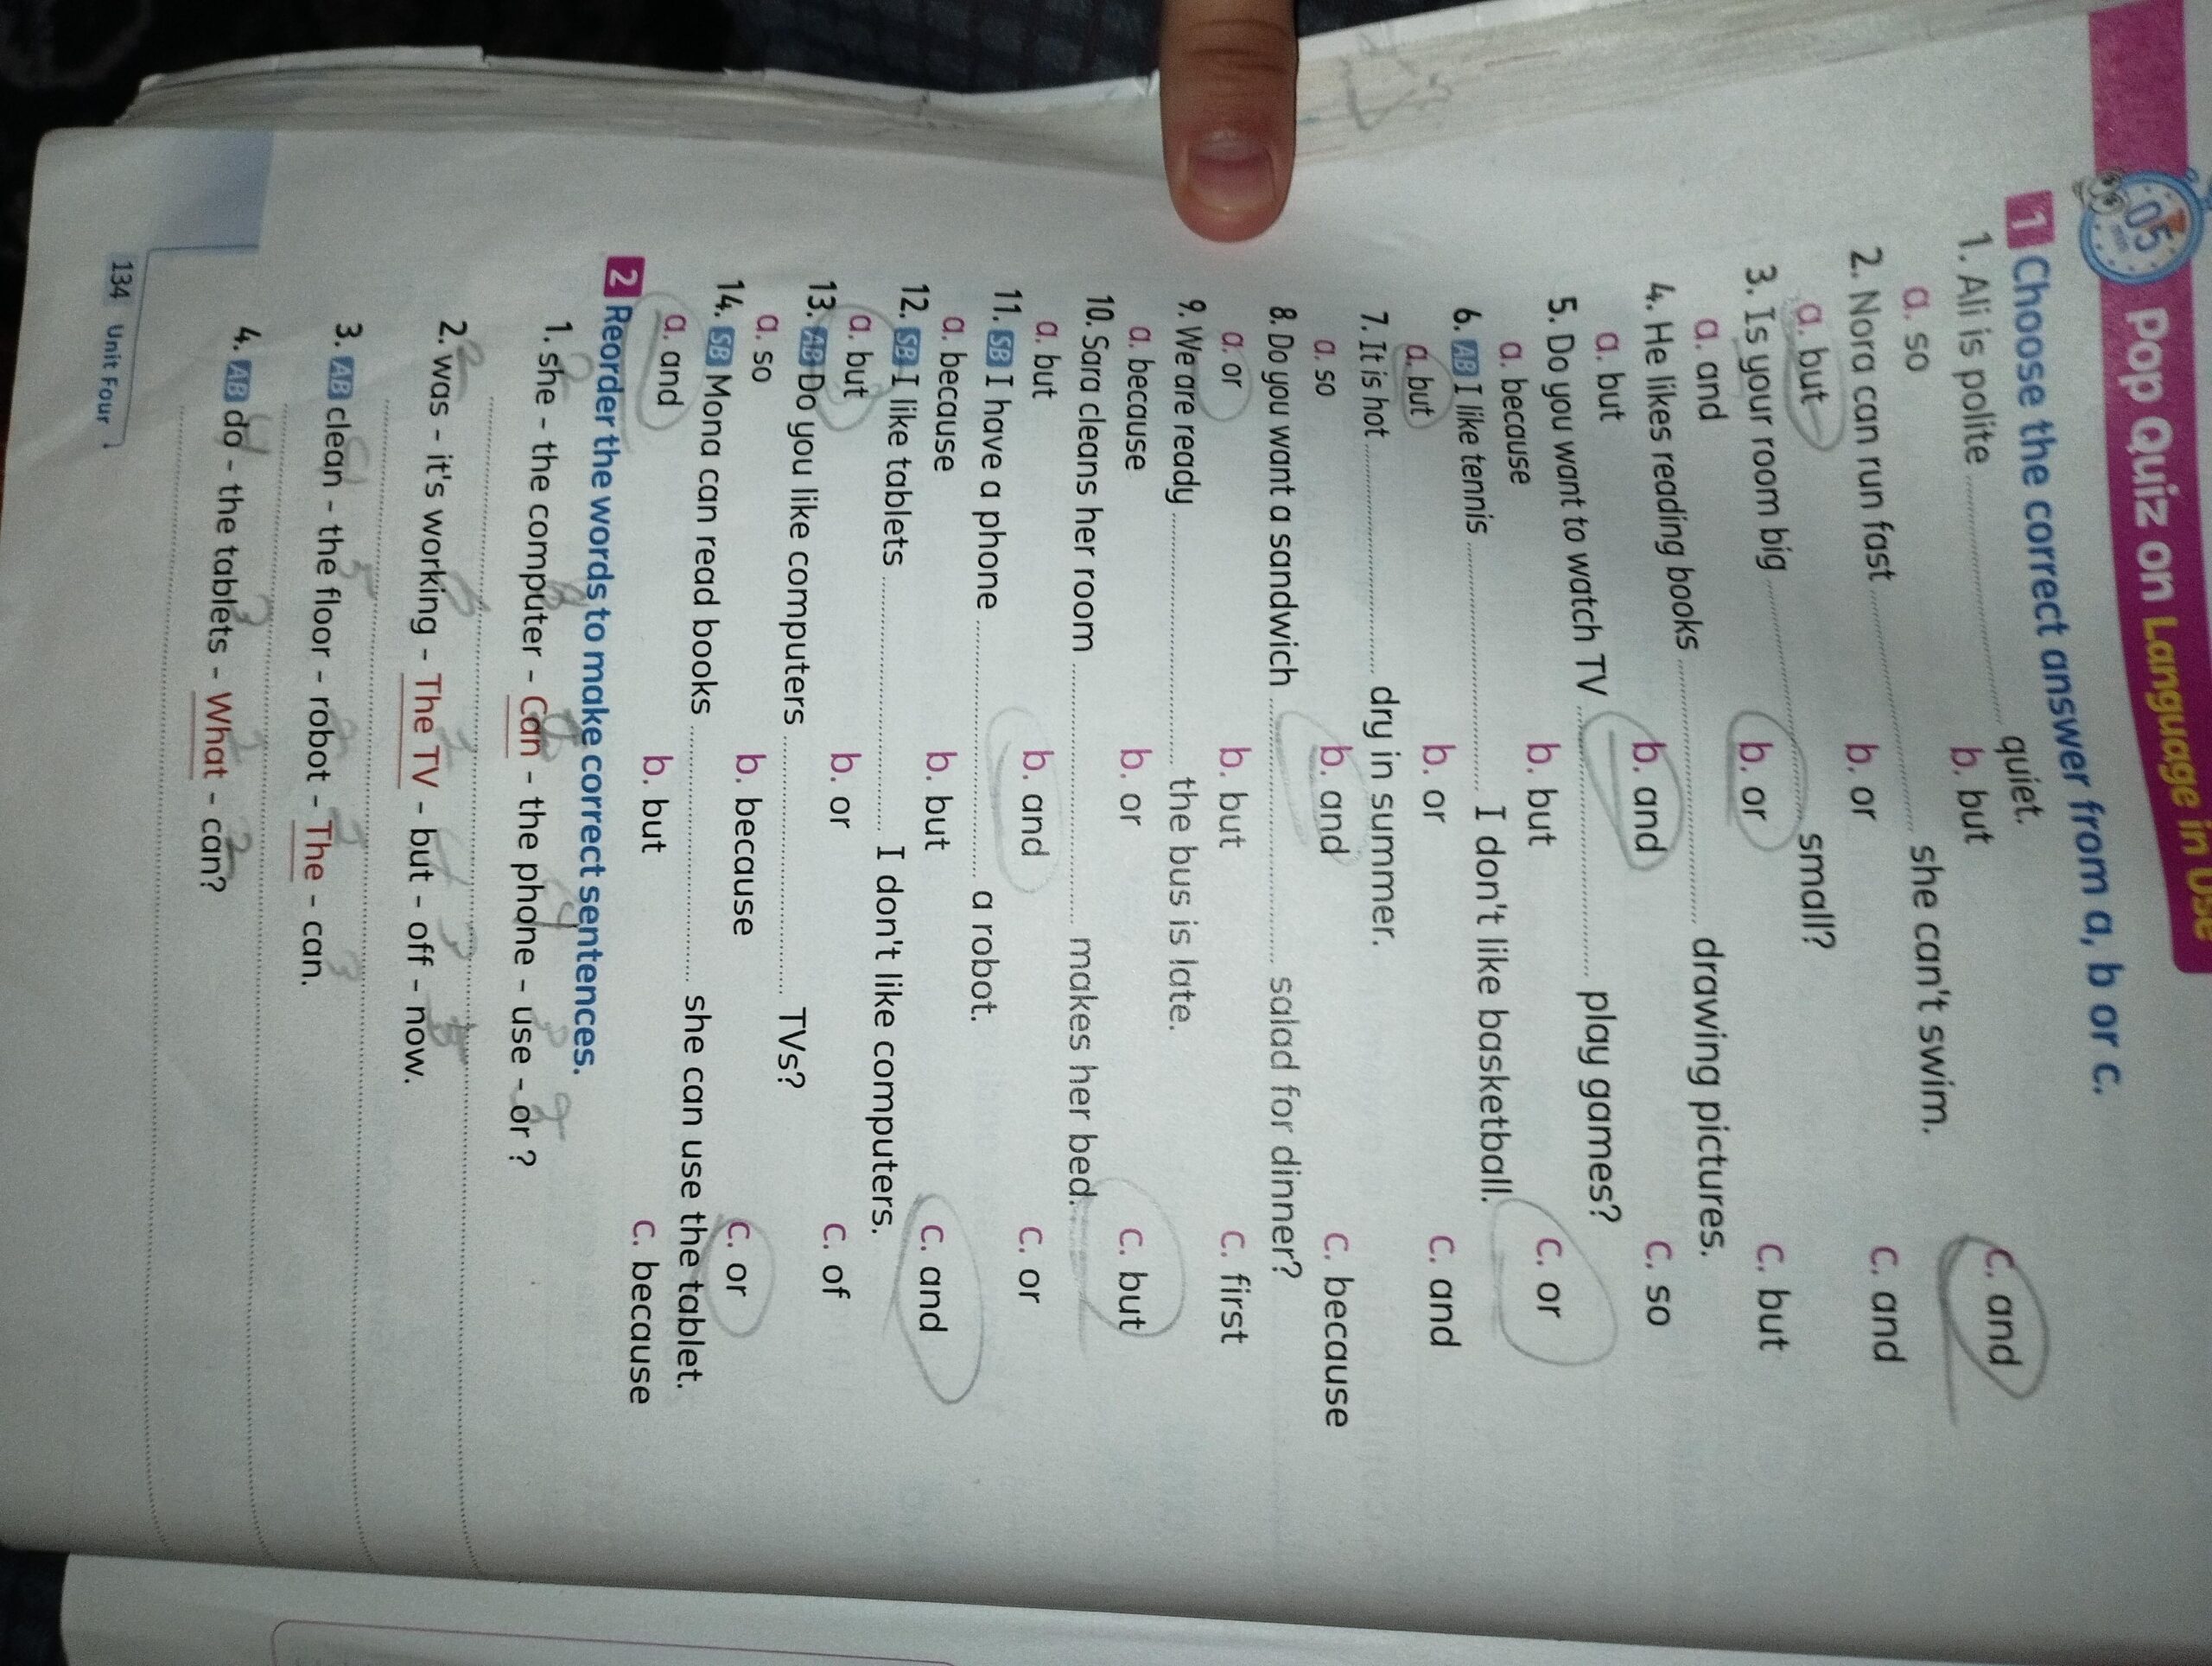 05
min
Pop Quiz on Language in Use
1 Choose the correct answer from a, b or c.
1. Ali is polite .................... quiet.
a. so b. but c. and
2. Nora can run fast .................... she can't swim.
a. but b. or c. and
3. Is your room big .................... small?
a. and b. or c. but
4. He likes reading books .................... drawing pictures.
a. but b. and c. so
5. Do you want to watch TV .................... play games?
a. because b. but c. or
6. AB I like tennis .................... I don't like basketball.
a. but b. or c. and
7. It is hot .................... dry in summer.
a. so b. and c. because
8. Do you want a sandwich .................... salad for dinner?
a. or b. but c. first
9. We are ready .................... the bus is late.
a. because b. or c. but
10. Sara cleans her room .................... makes her bed.
a. but b. and c. or
11. SB I have a phone .................... a robot.
a. because b. but c. and
12. SB I like tablets .................... I don't like computers.
a. but b. or c. of
13. AB Do you like computers .................... TVs?
a. so b. because c. or
14. SB Mona can read books .................... she can use the tablet.
a. and b. but c. because
2 Reorder the words to make correct sentences.
1. she - the computer - Can - the phone - use - or ?
2. was - it's working - The TV - but - off - now.
3. AB clean - the floor - robot - The - can.
4. AB do - the tablets - What - can?
134 Unit Four